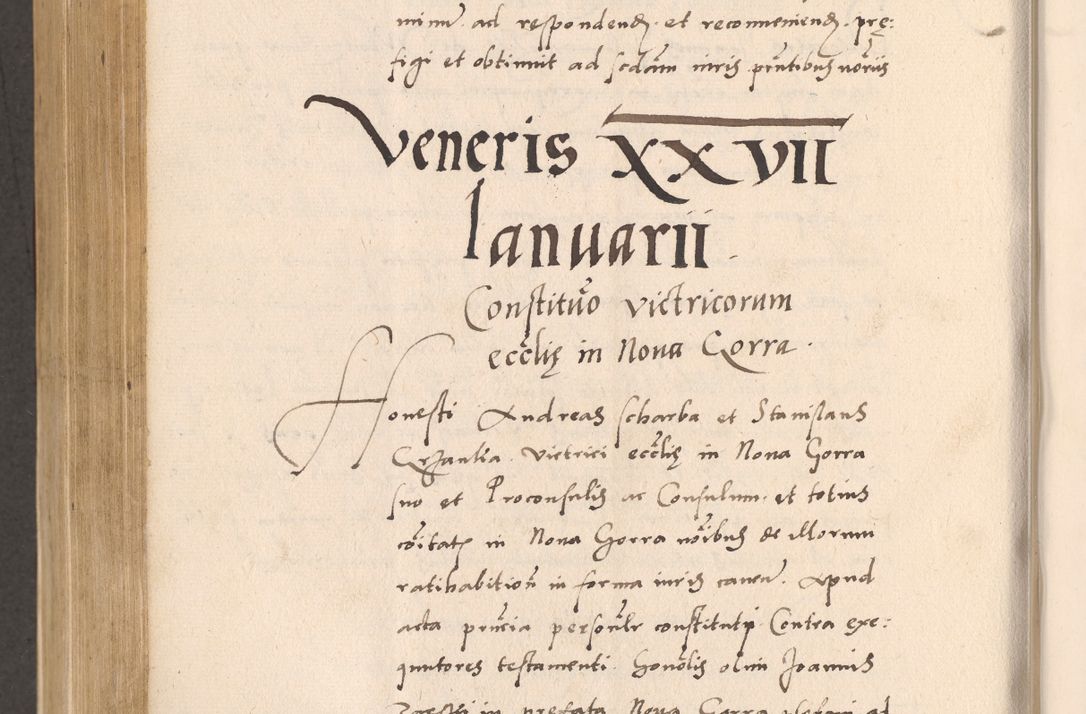 minu. ad respondend. et reconueniend. prę:
figi et obtinuit ad scdam iuris pruntibus noriis
Veneris XXVII
Ianuarii
Constituo victricorum
ecclię in Noua Gorra.
Honesti Andreas scharba et Stanislaus
victrici ecclię in Noua Gorra
suo et Proconsulis ac Consulum. et totius
coitatis in Noua Gorra noibus de illorum
ratihabition in forma iuris caueu. Apud
acta prucia personlr constituti Contra exe:
quutores testamenti. Honolis olim Joannis
in prefata Noua Gorra ad